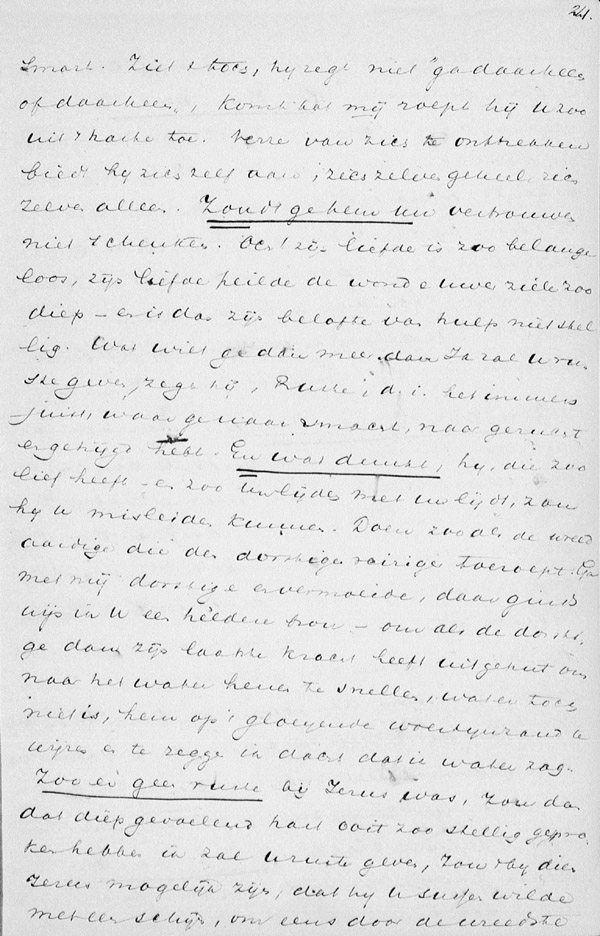 24.
smart. Ziet toch, hy zegt niet "ga daarheen
of daarheen", komt tot mij roept hij u zoo
uit harte toe. Verre van zich te onttrekken
biedt hy zich zelf aan, zich zelven geheel zich
zelven alleen. Zoudt ge hem uw vertrouwen
niet schenken. Och! zijn liefde is zoo belange
loos, zijn liefde peilde de wonde uwer ziele zoo
diep – en is dan zijn belofte van hulp niet stel
lig. Wat wilt ge dan meer dan Ik zal u rus
te geven, zegt hij, Ruste, d. i. het immers
juist, waar ge naar smacht, naar gezucht
en gehijgd hebt. En wat dunkt, hy, die zoo
lief heeft – en zoo medelijden met uw lijdt, zou
hy u misleiden kunnen. Doen zooals de wreed
aardige die den dorstigen reiziger toeroept: Ga
met mij dorstige en vermoeide, daar ginds
wijs ik u een heldere bron – om als de dorsti.
ge dan zijn laatste kracht heeft uitgeput om
naar het water henen te snellen, water toch
niet is, hem op 't gloeyende woestijnzand te
wijzen en te zeggen ik dacht dat ik water zag.
Zoo er geen ruste bij Jezus was, zou dan
dat diepgevoelend hart ooit zoo stellig gespro
ken hebben ik zal u ruste geven, zou by dien
Jezus mogelijk zijn, dat hy u sussen wilde
met een schijn, om eens door de wreedste